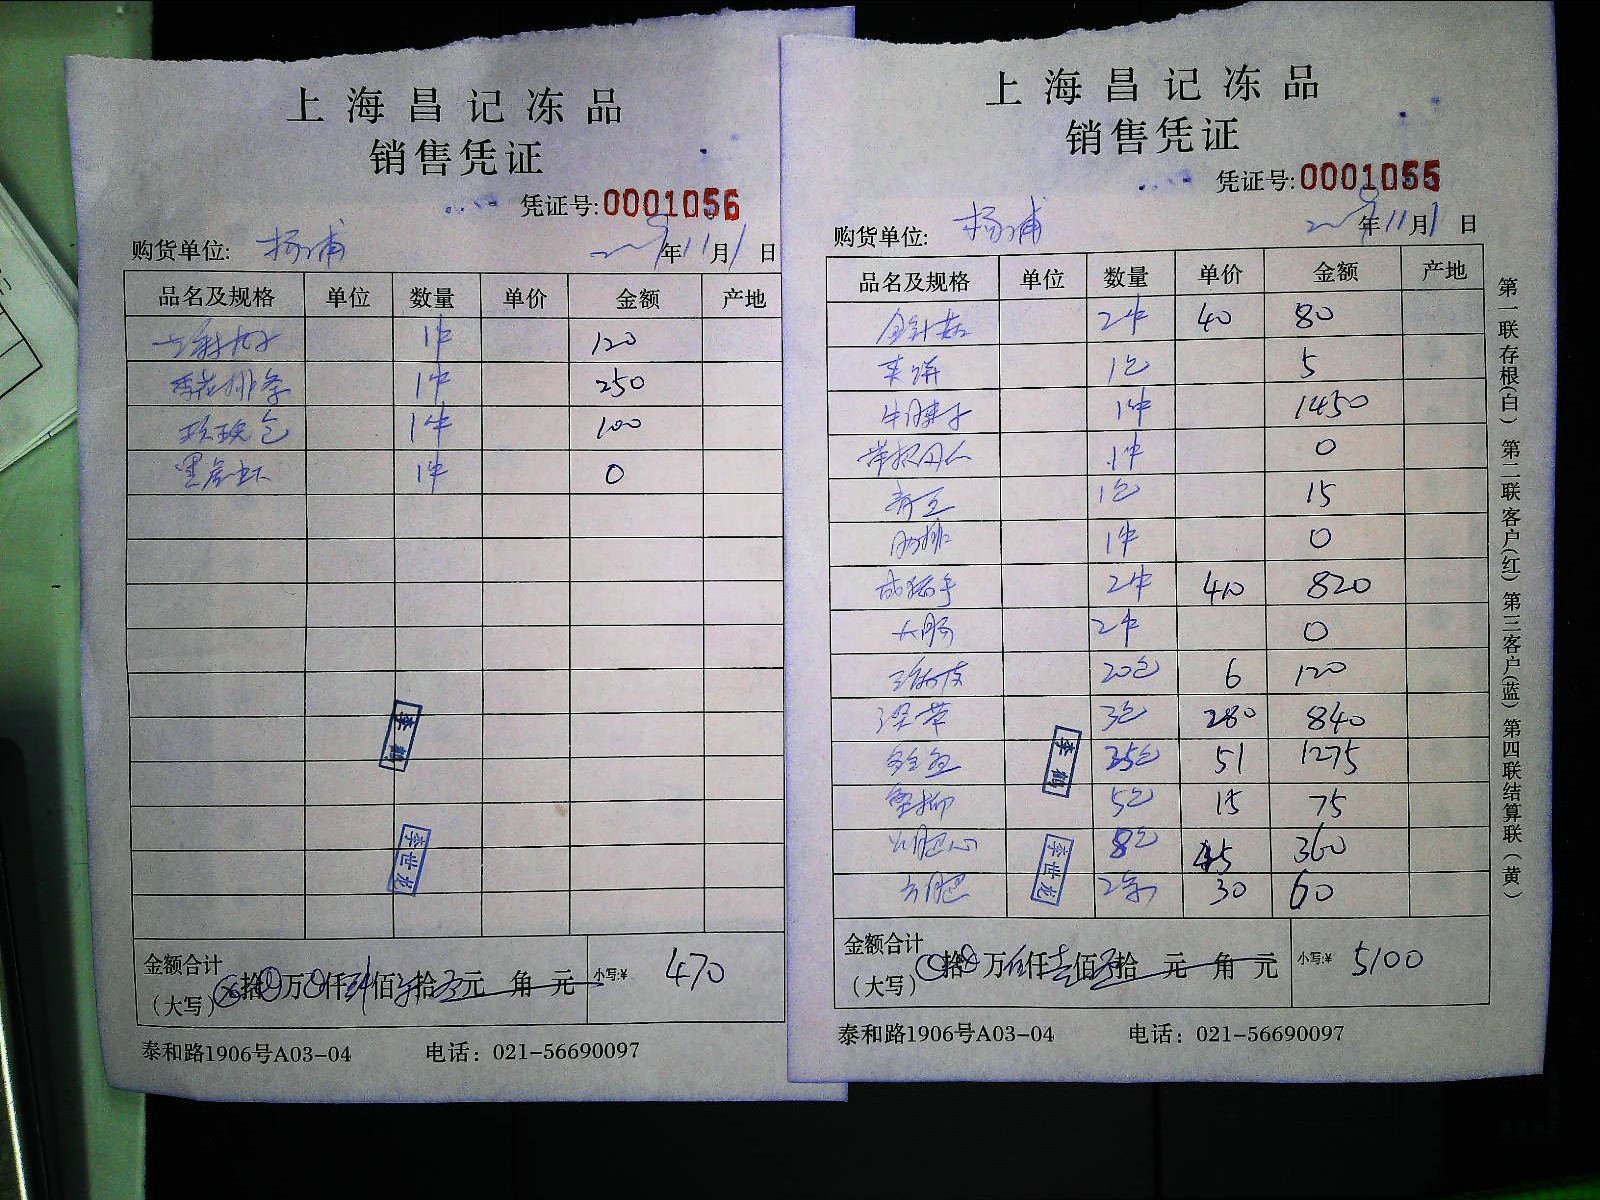 上海昌记冻品
销售凭证
凭证号:0001056
购货单位: 杨浦 年11月1日
品名及规格 单位 数量 单价 金额 产地
1件 120
1件 250
玫瑰包 1件 100
黑虎虾 1件 0
李鹤
李世龙
金额合计
(大写) 拾 万 仟 佰 拾 元 角 元 小写:¥ 470
泰和路1906号A03-04 电话: 021-56690097
上海昌记冻品
销售凭证
凭证号:0001055
购货单位: 杨浦 年11月1日
品名及规格 单位 数量 单价 金额 产地
金针菇 2件 40 80
1包 5
牛腱子 1件 1450
1件 0
青豆 1包 15
肋排 1件 0
2件 410 820
大肠 2件 0
20包 6 120
3包 280 840
51 1275
5包 15 75
8包 45 360
2条 30 60
李鹤
李世龙
金额合计
(大写) 拾 万 仟 佰 拾 元 角 元 小写:¥ 5100
泰和路1906号A03-04 电话: 021-56690097
第一联存根(白) 第二联客户(红) 第三客户(蓝) 第四联结算联(黄)